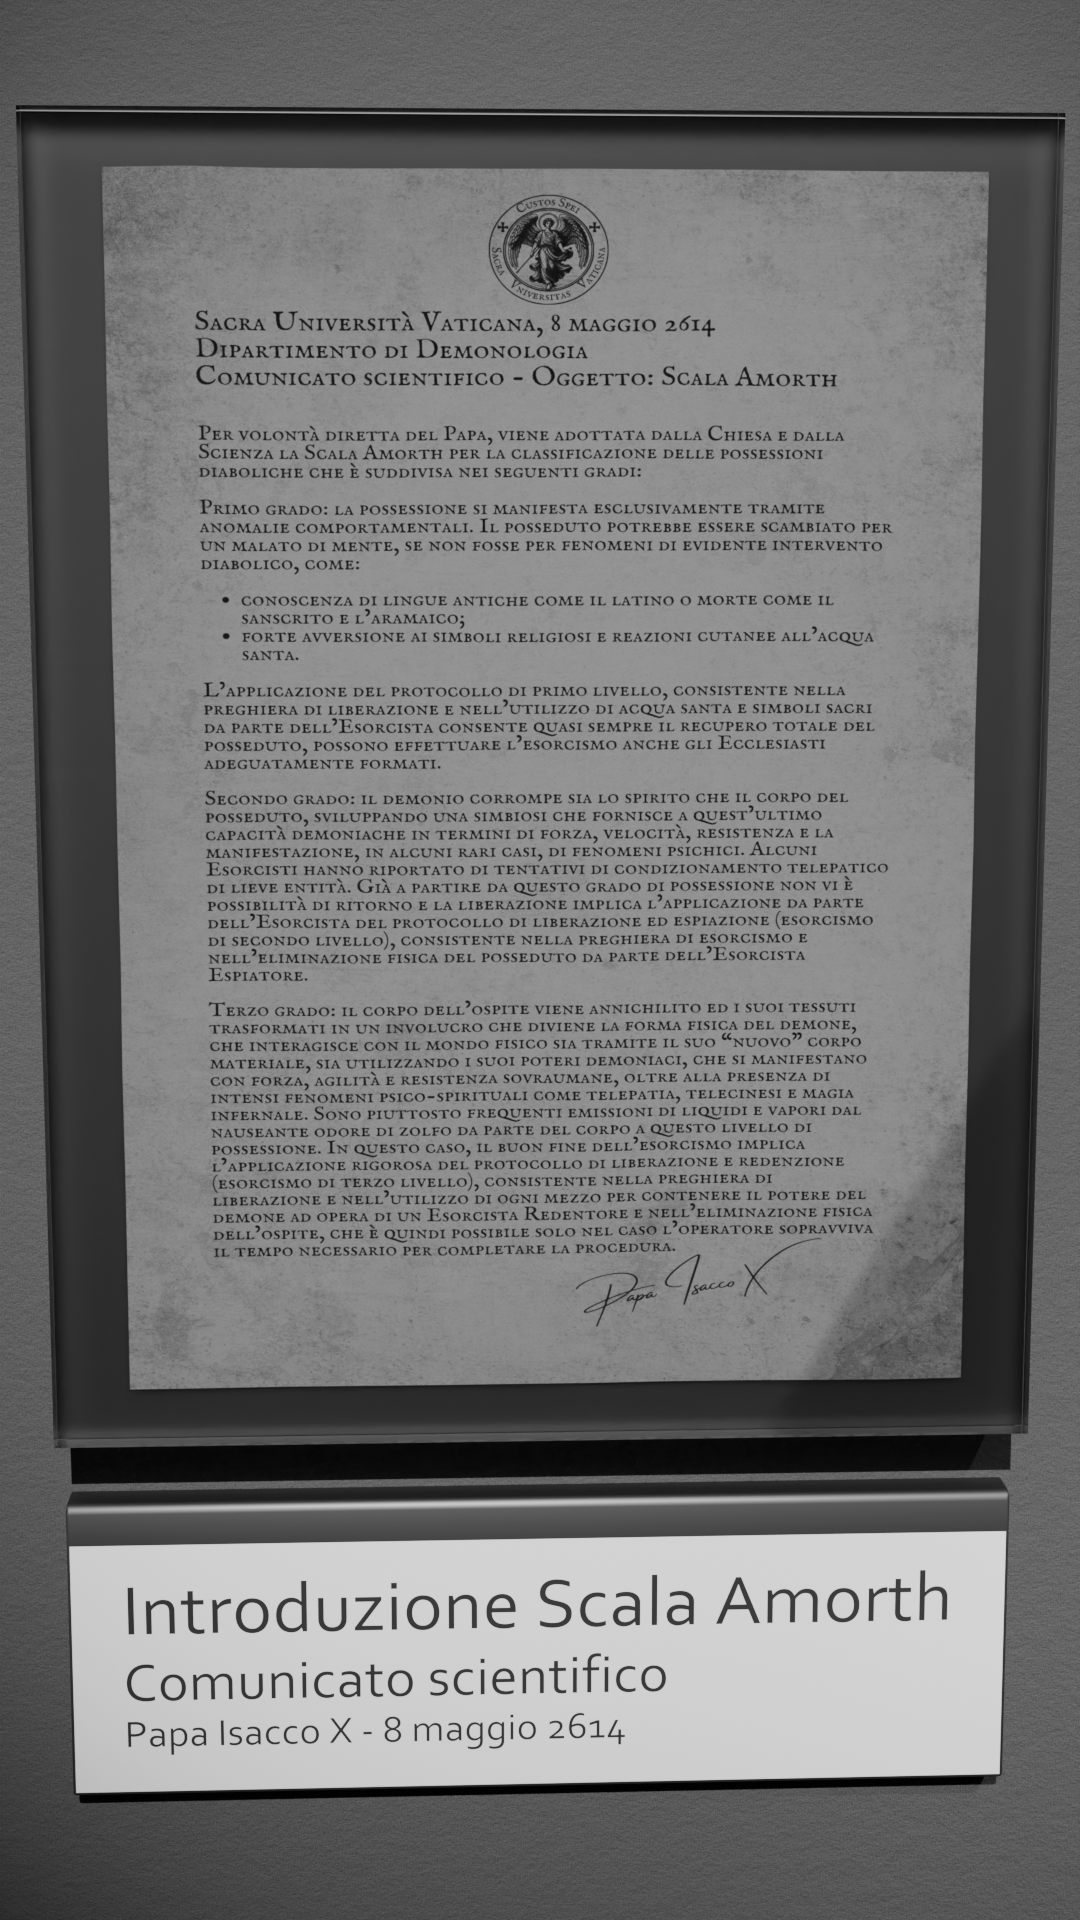 Custos Spei
Sacra Vniversitas Vaticana
Sacra Università Vaticana, 8 maggio 2614
Dipartimento di Demonologia
Comunicato scientifico - Oggetto: Scala Amorth
Per volontà diretta del Papa, viene adottata dalla Chiesa e dalla
Scienza la Scala Amorth per la classificazione delle possessioni
diaboliche che è suddivisa nei seguenti gradi:
Primo grado: la possessione si manifesta esclusivamente tramite
anomalie comportamentali. Il posseduto potrebbe essere scambiato per
un malato di mente, se non fosse per fenomeni di evidente intervento
diabolico, come:
• conoscenza di lingue antiche come il latino o morte come il
sanscrito e l'aramaico;
• forte avversione ai simboli religiosi e reazioni cutanee all'acqua
santa.
L'applicazione del protocollo di primo livello, consistente nella
preghiera di liberazione e nell'utilizzo di acqua santa e simboli sacri
da parte dell'Esorcista consente quasi sempre il recupero totale del
posseduto, possono effettuare l'esorcismo anche gli Ecclesiasti
adeguatamente formati.
Secondo grado: il demonio corrompe sia lo spirito che il corpo del
posseduto, sviluppando una simbiosi che fornisce a quest'ultimo
capacità demoniache in termini di forza, velocità, resistenza e la
manifestazione, in alcuni rari casi, di fenomeni psichici. Alcuni
Esorcisti hanno riportato di tentativi di condizionamento telepatico
di lieve entità. Già a partire da questo grado di possessione non vi è
possibilità di ritorno e la liberazione implica l'applicazione da parte
dell'Esorcista del protocollo di liberazione ed espiazione (esorcismo
di secondo livello), consistente nella preghiera di esorcismo e
nell'eliminazione fisica del posseduto da parte dell'Esorcista
Espiatore.
Terzo grado: il corpo dell'ospite viene annichilito ed i suoi tessuti
trasformati in un involucro che diviene la forma fisica del demone,
che interagisce con il mondo fisico sia tramite il suo “nuovo” corpo
materiale, sia utilizzando i suoi poteri demoniaci, che si manifestano
con forza, agilità e resistenza sovraumane, oltre alla presenza di
intensi fenomeni psico-spirituali come telepatia, telecinesi e magia
infernale. Sono piuttosto frequenti emissioni di liquidi e vapori dal
nauseante odore di zolfo da parte del corpo a questo livello di
possessione. In questo caso, il buon fine dell'esorcismo implica
l'applicazione rigorosa del protocollo di liberazione e redenzione
(esorcismo di terzo livello), consistente nella preghiera di
liberazione e nell'utilizzo di ogni mezzo per contenere il potere del
demone ad opera di un Esorcista Redentore e nell'eliminazione fisica
dell'ospite, che è quindi possibile solo nel caso l'operatore sopravviva
il tempo necessario per completare la procedura.
Papa Isacco X
Introduzione Scala Amorth
Comunicato scientifico
Papa Isacco X - 8 maggio 2614